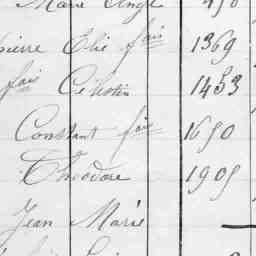 Marie Ange
pierre Elie fais 1369
fais Célestin 1453
Constant fais 1650
Théodore 1905
Jean Marie